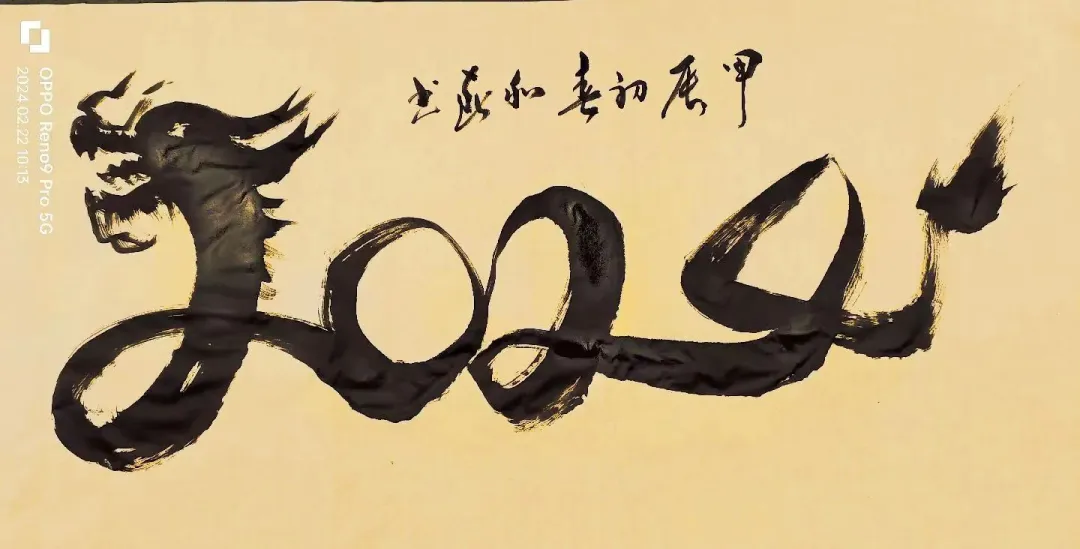 甲辰初春和书
2024
OPPO Reno9 Pro 5G
2024.02.22 10:13